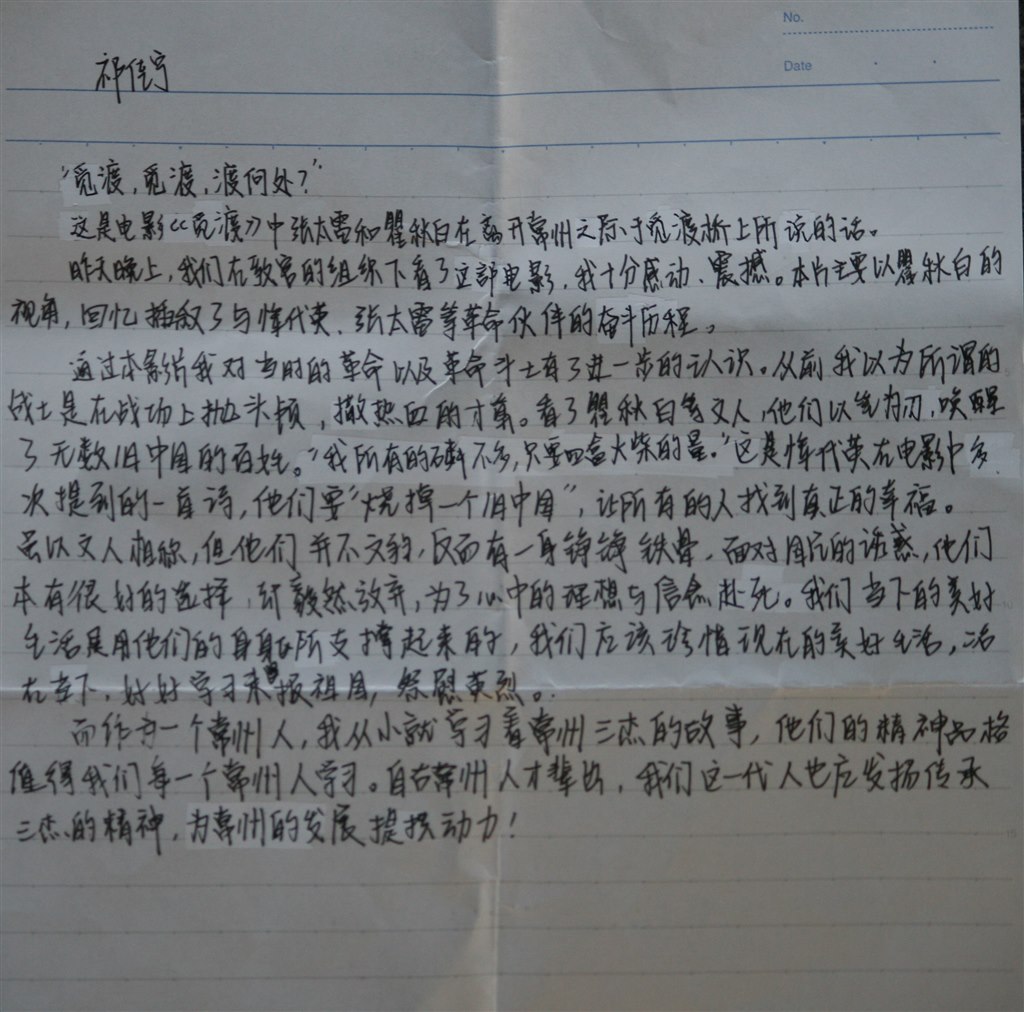 No.
Date
祁佳宁
“觅渡，觅渡，渡何处？”
这是电影《觅渡》中张太雷和瞿秋白在离开常州之际于觅渡桥上所说的话。
昨天晚上，我们在教官的组织下看了这部电影，我十分感动、震撼。本片主要以瞿秋白的
视角，回忆插叙了与恽代英、张太雷等革命伙伴的奋斗历程。
通过本影片我对当时的革命以及革命斗士有了进一步的认识。从前我以为所谓的
战士是在战场上抛头颅，撒热血的才算。看了瞿秋白等文人，他们以笔为刃，唤醒
了无数旧中国的百姓。“我所有的磷不多，只要四盒火柴的量。”这是恽代英在电影中多
次提到的一首诗，他们要“烧掉一个旧中国”，让所有的人找到真正的幸福。
虽以文人相称，但他们并不文弱，反而有一身铮铮铁骨，面对国民的诱惑，他们
本有很好的选择，却毅然放弃，为了心中的理想与信念赴死。我们当下的美好
生活是用他们的身躯所支撑起来的，我们应该珍惜现在的美好生活，活
在当下，好好学习来报祖国，祭慰英烈。
而作为一个常州人，我从小就学习着常州三杰的故事，他们的精神品格
值得我们每一个常州人学习。自古常州人才辈出，我们这一代人也应发扬传承
三杰的精神，为常州的发展提供动力！
15